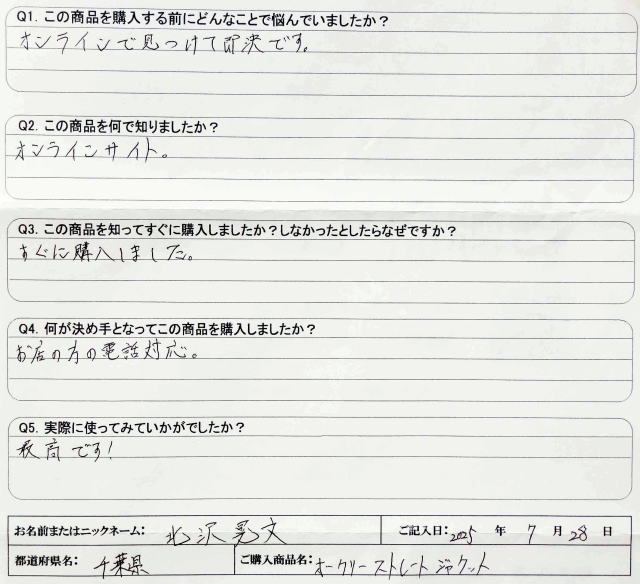 Q1. この商品を購入する前にどんなことで悩んでいましたか？
オンラインで見つけて即決です。
Q2. この商品を何で知りましたか？
オンラインサイト。
Q3. この商品を知ってすぐに購入しましたか？しなかったとしたらなぜですか？
すぐに購入しました。
Q4. 何が決め手となってこの商品を購入しましたか？
お店の方の電話対応。
Q5. 実際に使ってみていかがでしたか？
最高です！
お名前またはニックネーム： 北沢晃文 ご記入日：2025 年 7 月 28 日
都道府県名： 千葉県 ご購入商品名：オークリーストレートジャケット